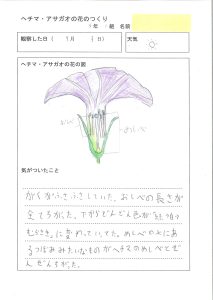 ヘチマ・アサガオの花のつくり
年 組 名前
観察した日（ 9月 （ ）日）
天気
ヘチマ・アサガオの花の図
おしべ
めしべ
気がついたこと
がくがふさふさしていた。おしべの長さが
全てちがった。下からだんだん色が
むらさき に変わっていてた。めしべの下にあ
るつぼみみたいなものがヘチマのめしべとぜ
んぜんちがった。